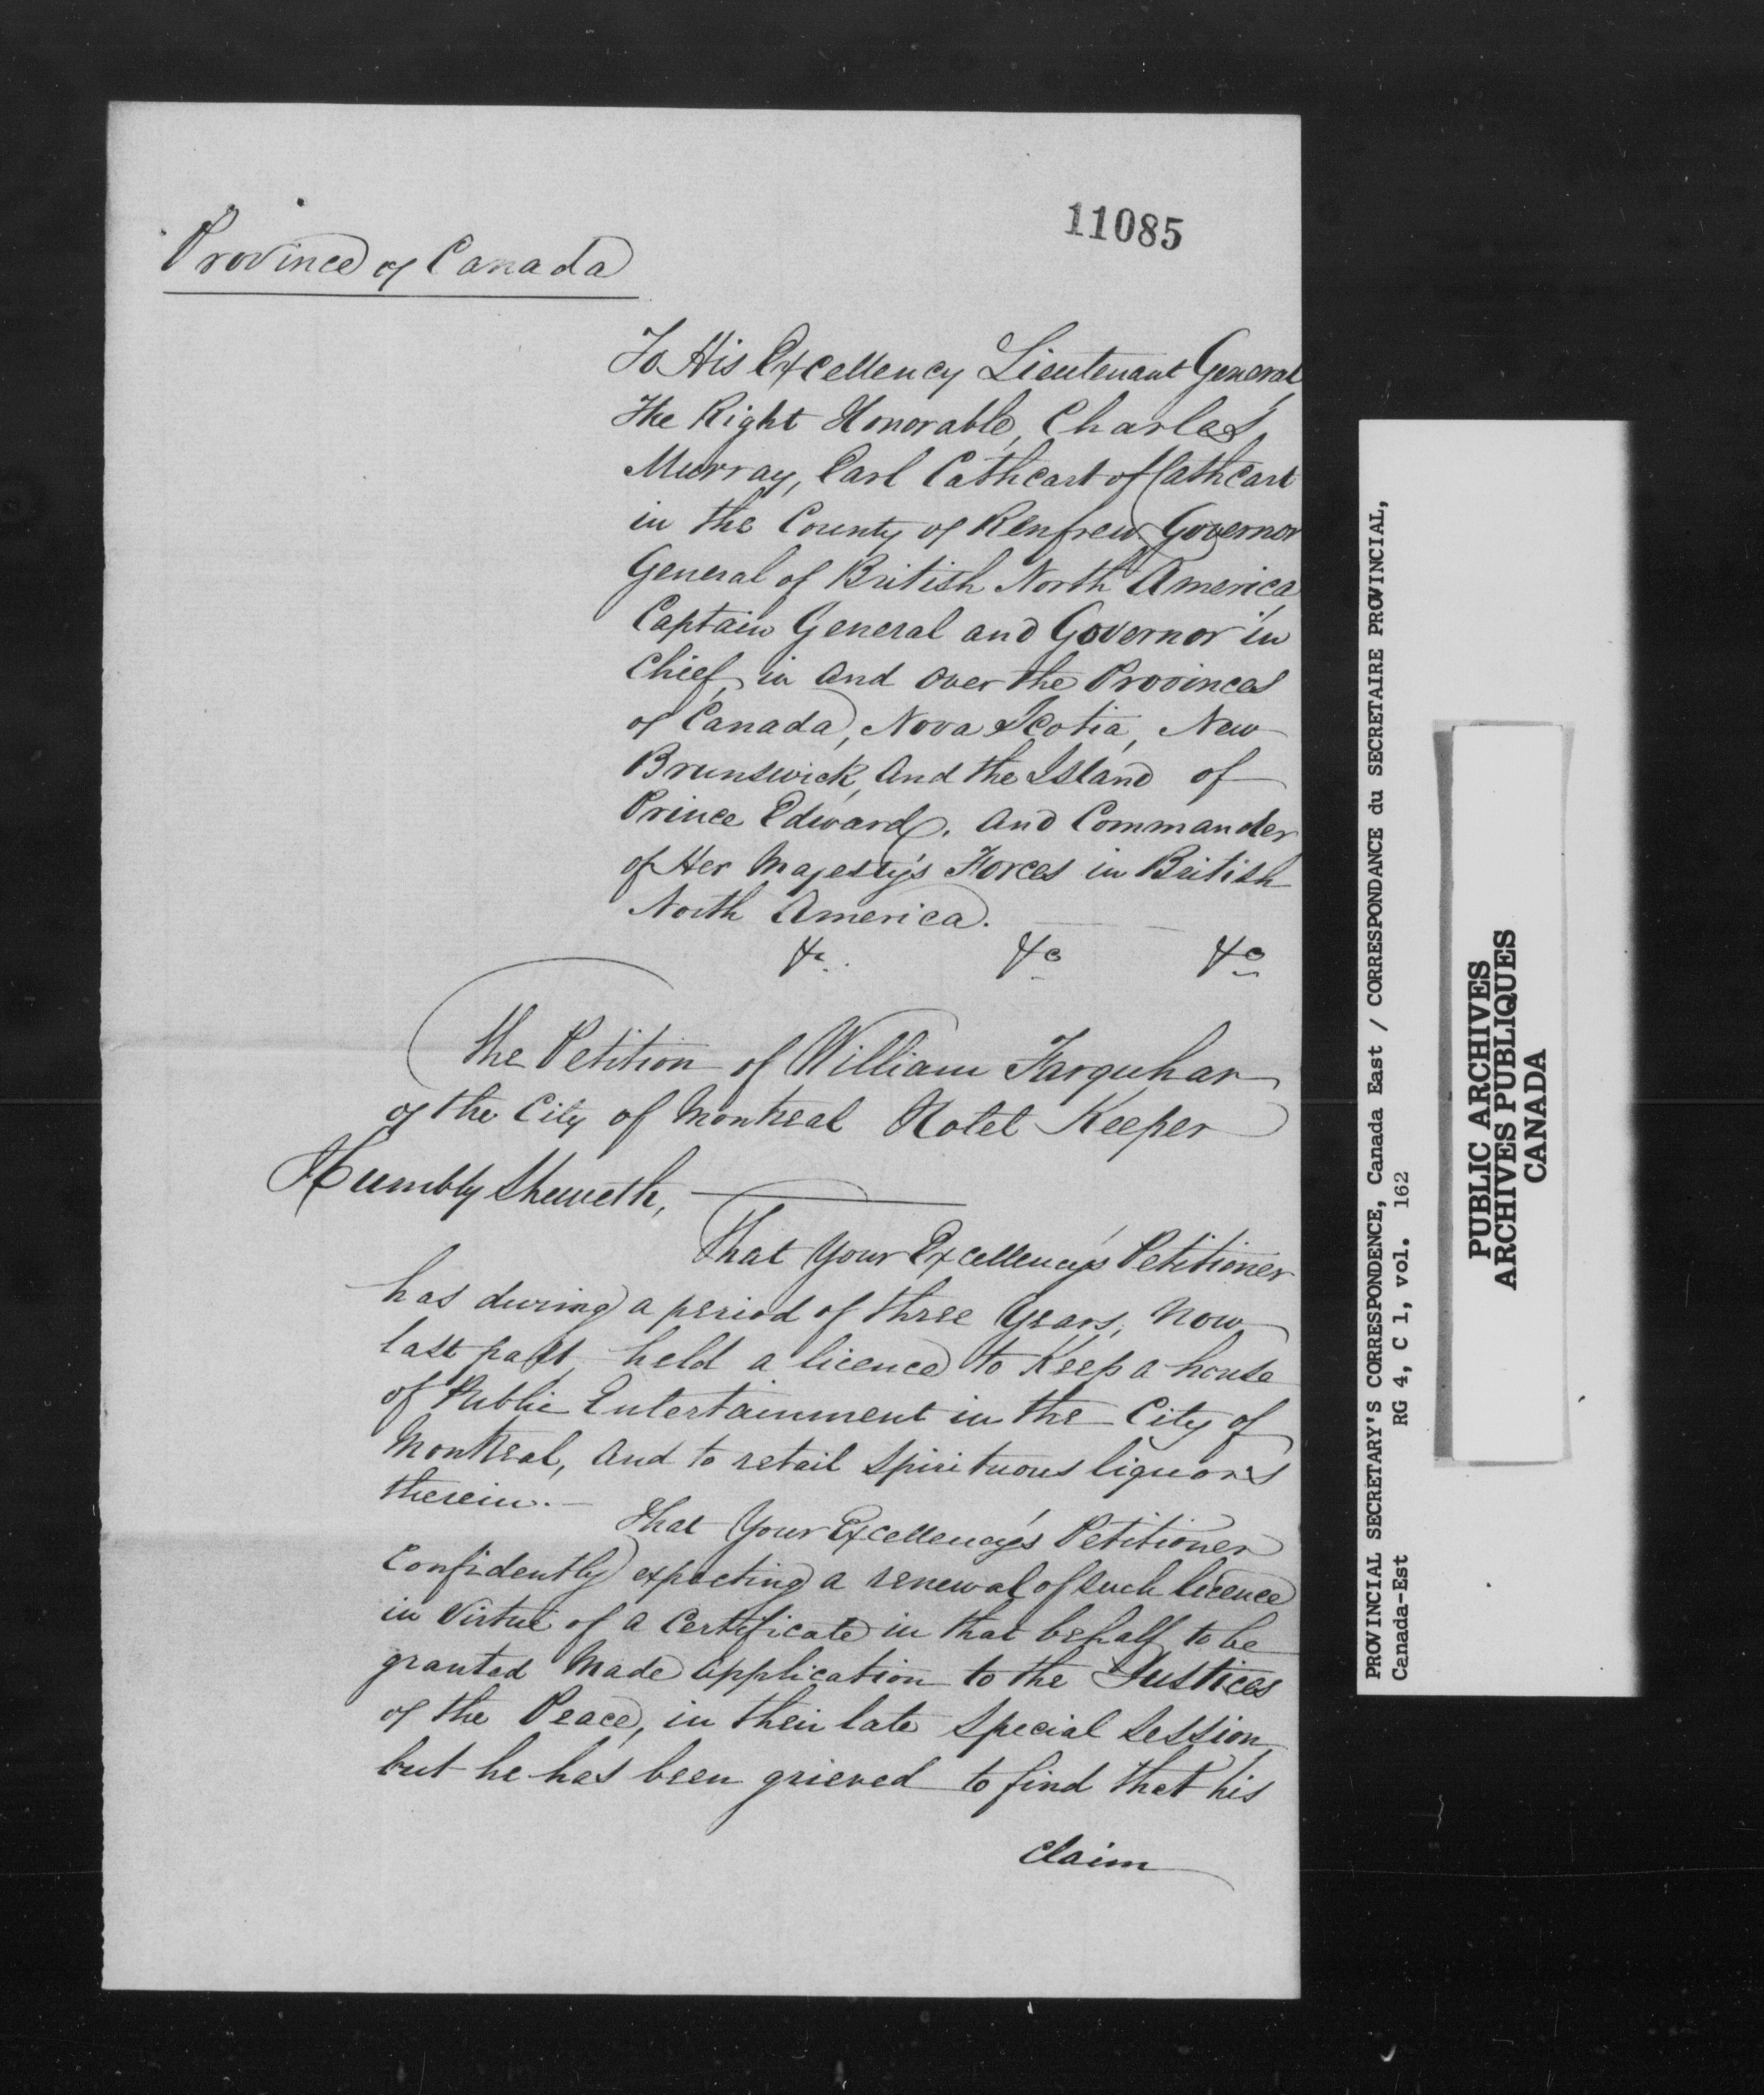 11085
Province of Canada
To His Excellency Lieutenant General
The Right Honorable, Charles
Murray, Earl Cathcart of Cathcart
in the County of Renfrew, Governor
General of British North America
Captain General and Governor in
Chief, in and over the Provinces
of Canada, Nova Scotia, New
Brunswick, and the Island of
Prince Edward, and Commander
of Her Majesty's Forces in British
North America.
&c. &c &c
The Petition of William Farquhar
of the City of Montreal Hotel Keeper
Humbly Sheweth,
That Your Excellency's Petitioner
has during a period of three Years, now
last past, held a licence to Keep a house
of Public Entertainment in the City of
Montreal, and to retail Spirituous liquors
therein. —
That Your Excellency's Petitioner
Confidently expecting a renewal of such licence
in Virtue of a Certificate in that behalf to be
granted made application to the Justices
of the Peace, in their late Special Session
but he has been grieved to find that his
Claim
PROVINCIAL SECRETARY'S CORRESPONDENCE, Canada East / CORRESPONDANCE du SECRETAIRE PROVINCIAL,
Canada-Est RG 4, C 1, vol. 162
PUBLIC ARCHIVES
ARCHIVES PUBLIQUES
CANADA